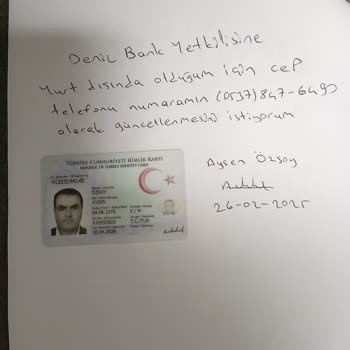 Deniz Bank Yetkilisine
Yurt dışında olduğum için cep
telefonu numaramın (0537)847-6490
olarak güncellenmesini istiyorum
Ayşen Özsoy
26-02-2025
TÜRKİYE CUMHURİYETİ KİMLİK KARTI
REPUBLIC OF TURKEY IDENTITY CARD
ÖZSOY
AYŞEN
04.06.1975
T.C./TUR
30.04.2028